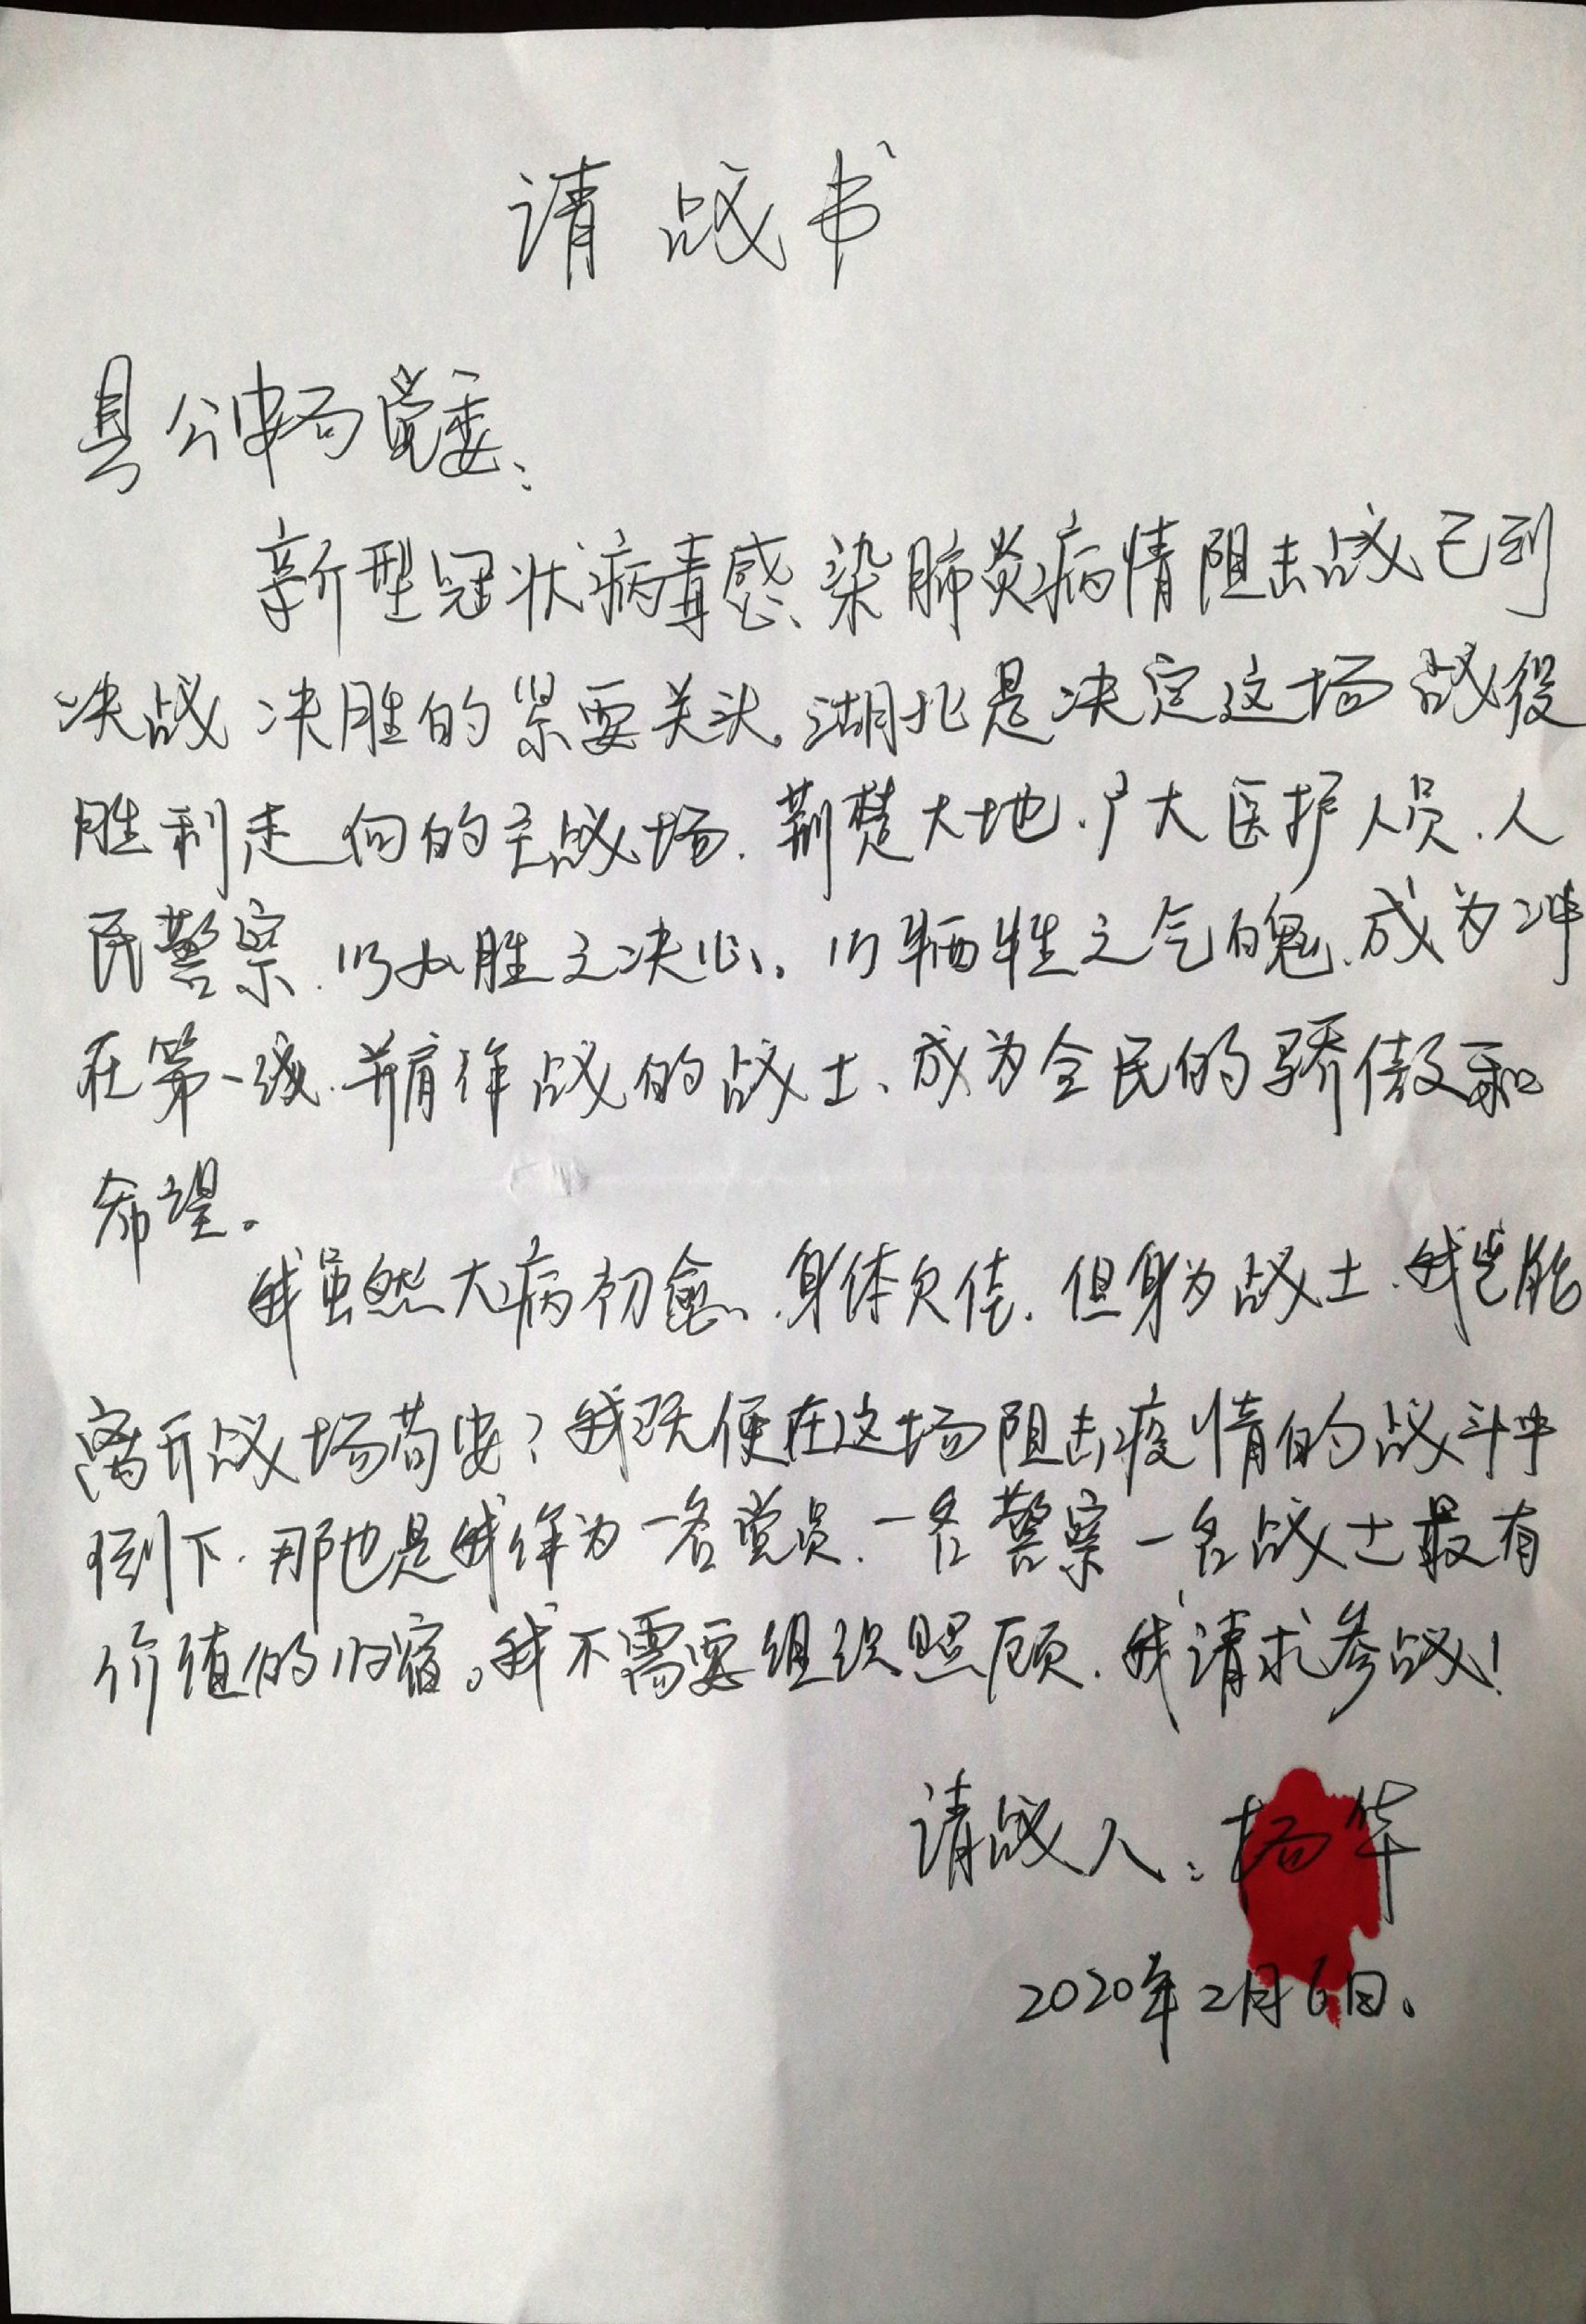 请战书
县公安局党委：
新型冠状病毒感染肺炎病情阻击战已到
决战决胜的紧要关头。湖北是决定这场战役
胜利走向的主战场.荆楚大地.广大医护人员.人
民警察.以必胜之决心、以牺牲之气魄.成为冲
在第一线.并肩作战的战士、成为全民的骄傲和
希望。
我虽然大病初愈、身体欠佳.但身为战士.我岂能
离开战场苟安？我既便在这场阻击疫情的战斗中
倒下.那也是我作为一名党员.一名警察一名战士最有
价值的归宿。我不需要组织照顾.我请求参战！
请战人：杨华
2020年2月6日.